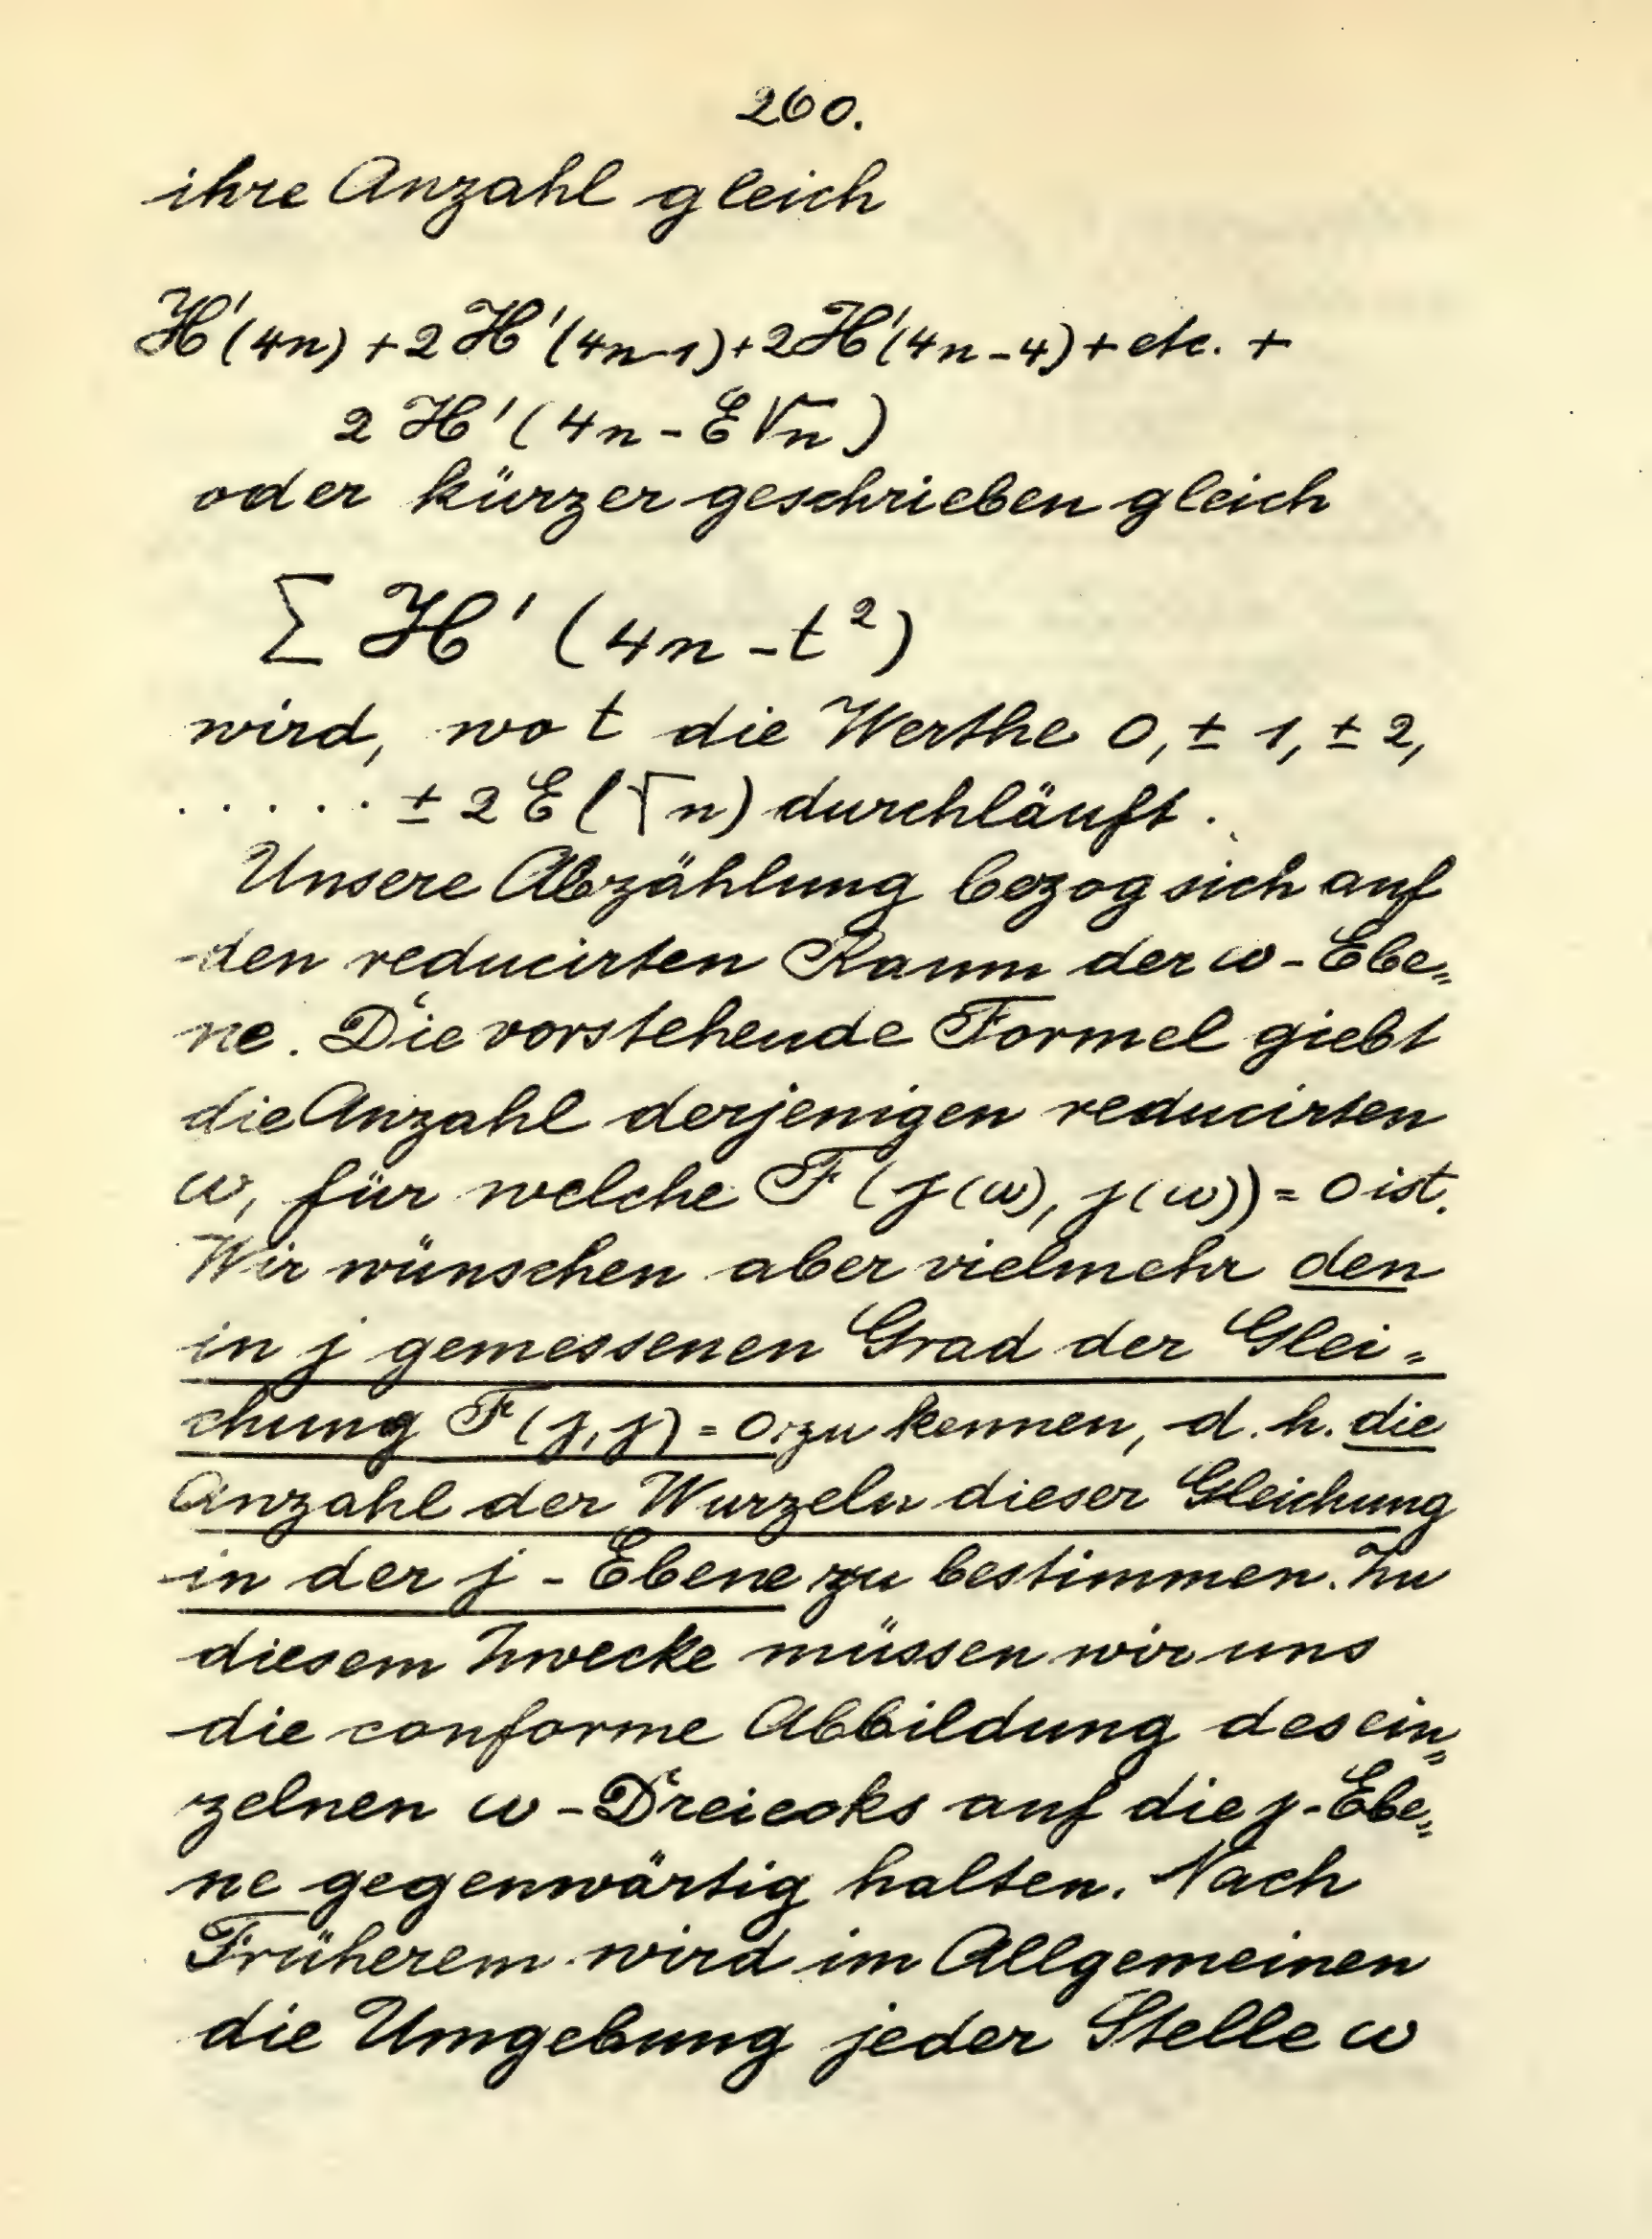 260.
ihre Anzahl gleich
H'(4n) + 2 H'(4n-1) + 2 H'(4n-4) + etc. +
2 H'(4n - E√n)
oder kürzer geschrieben gleich
∑ H' (4n - t²)
wird, wo t die Werthe 0, ± 1, ± 2,
. . . . . . ± 2 E(√n) durchläuft.
Unsere Abzählung bezog sich auf
den reducirten Raum der ω-Ebe=
ne. Die vorstehende Formel giebt
die Anzahl derjenigen reducirten
ω, für welche F(j(ω), j(ω)) = 0 ist.
Wir wünschen aber vielmehr den
in j gemessenen Grad der Glei=
chung F(j, j) = 0 zu kennen, d. h. die
Anzahl der Wurzeln dieser Gleichung
in der j-Ebene zu bestimmen. Zu
diesem Zwecke müssen wir uns
die conforme Abbildung des ein=
zelnen ω-Dreiecks auf die j-Ebe=
ne gegenwärtig halten. Nach
Früherem wird im Allgemeinen
die Umgebung jeder Stelle ω